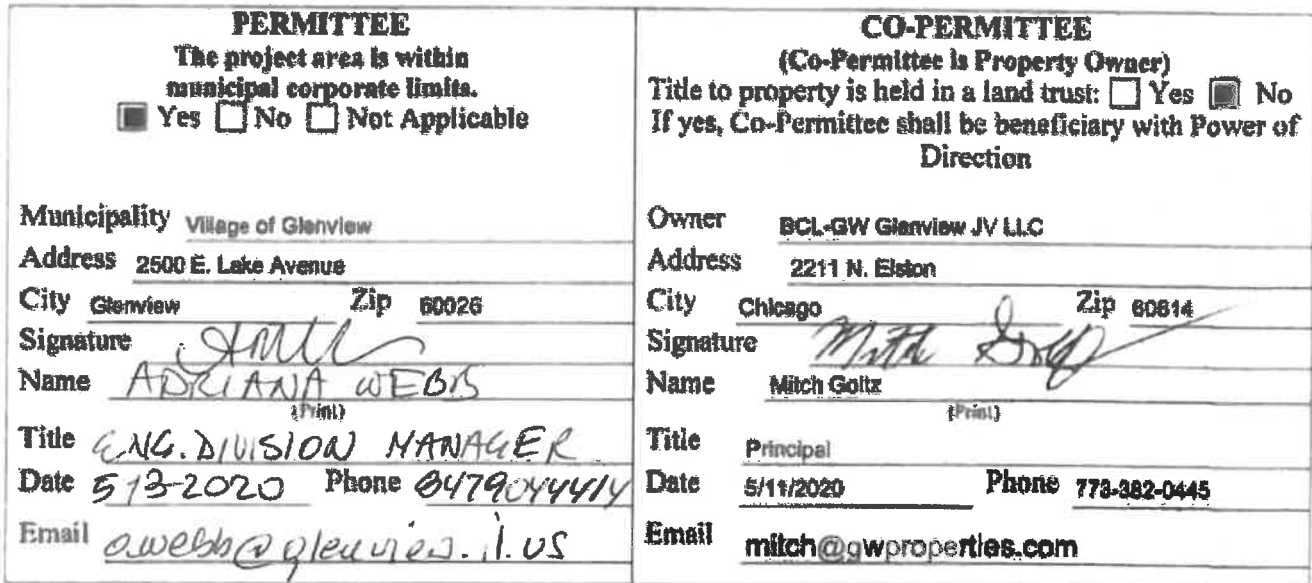 PERMITTEE
The project area is within
municipal corporate limits.
Yes No Not Applicable
Municipality Village of Glenview
Address 2500 E. Lake Avenue
City Glenview Zip 60026
Signature
Name ADRIANA WEBB
(Print)
Title ENG. DIVISION MANAGER
Date 5-13-2020 Phone 8479044414
Email awebb@glenview.il.us
CO-PERMITTEE
(Co-Permittee is Property Owner)
Title to property is held in a land trust: Yes No
If yes, Co-Permittee shall be beneficiary with Power of
Direction
Owner BCL-GW Glenview JV LLC
Address 2211 N. Elston
City Chicago Zip 60614
Signature
Name Mitch Goltz
(Print)
Title Principal
Date 5/11/2020 Phone 773-382-0445
Email mitch@gwproperties.com